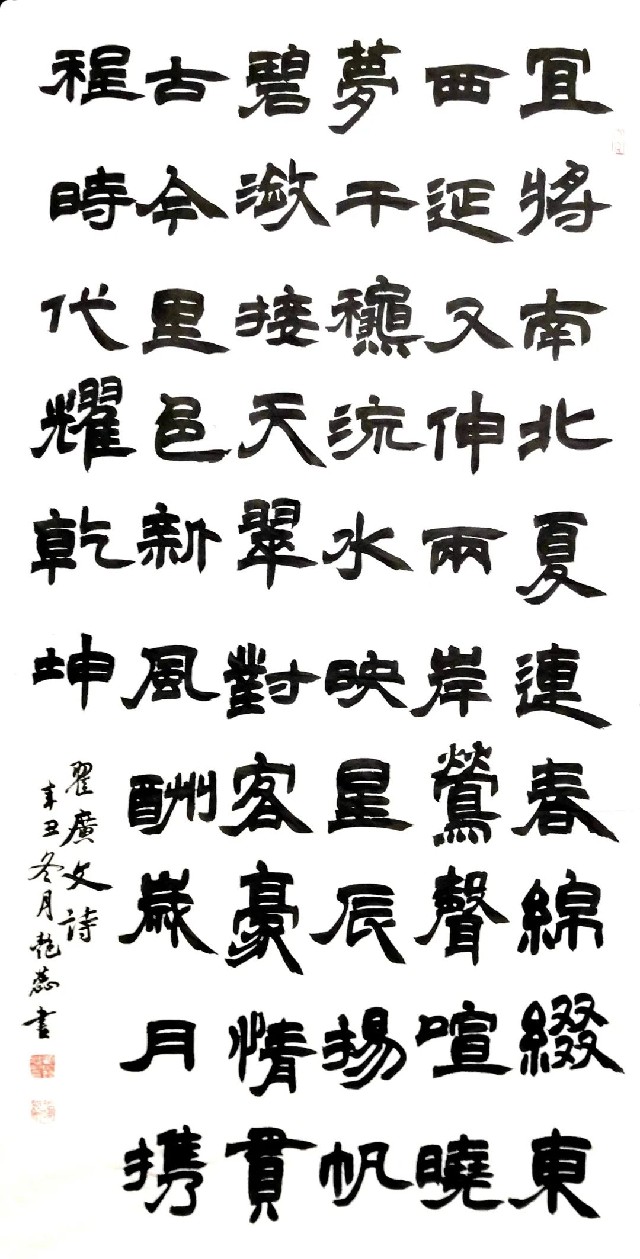 宜將南北夏連春綿綴東
西延又伸兩岸鶯聲喧曉
夢千穗流水映星辰揚帆
碧潋接天翠對客豪情貫
古今里邑新風酬歲月攜
程時代耀乾坤
翟廣文詩
辛丑冬月艳蕊書